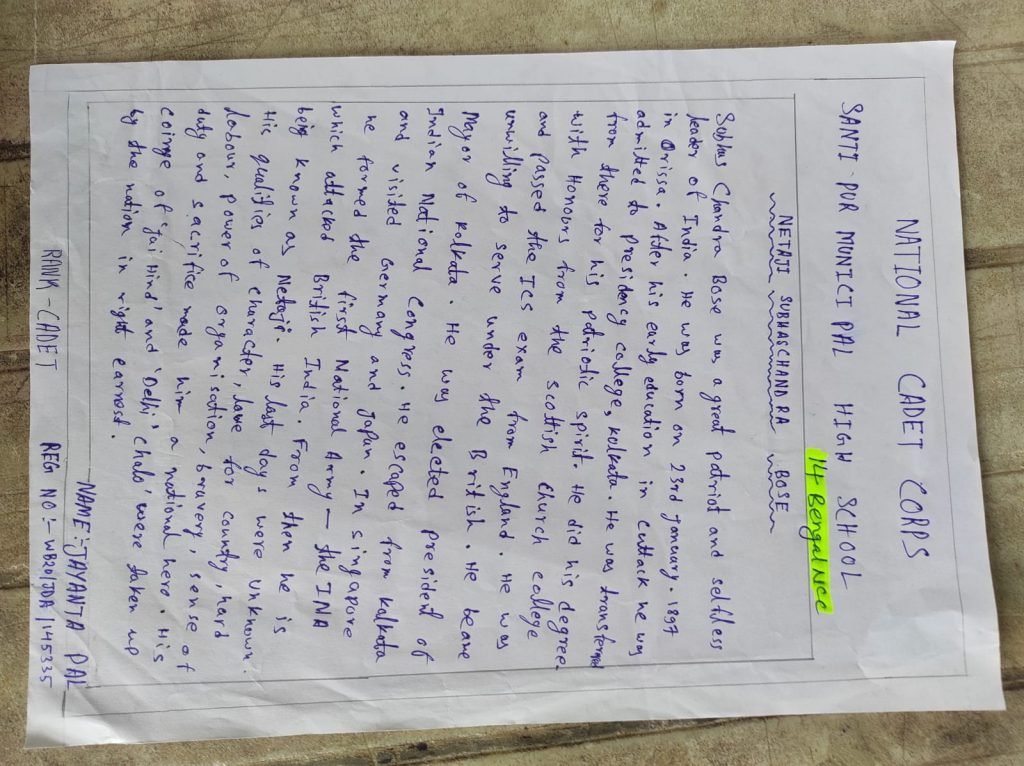 NATIONAL CADET CORPS
SANTI-PUR MUNICIPAL HIGH SCHOOL
14 Bengal NCC
NETAJI SUBHASCHANDRA BOSE
Subhas Chandra Bose was a great patriot and selfless
leader of India. He was born on 23rd January. 1897
in Orissa. After his early education in Cuttack he was
admitted to Presidency college, Kolkata. He was transferred
from there for his patriotic spirit. He did his degree
with Honours from the Scottish Church College
and passed the ICS exam from England. He was
unwilling to serve under the British. He beame
Mayor of Kolkata. He was elected president of
Indian National Congress. He escaped from Kolkata
and visited Germany and Japan. In Singapore
he formed the first National Army - the INA
which attacked British India. From then he is
being known as Netaji. His last days were unknown.
His qualities of character, love for country, hard
labour, power of organisation, bravery, sense of
duty and sacrifice made him a national hero. His
coinge of 'Jai Hind' and 'Delhi Chalo' were taken up
by the nation in right earnest.
NAME:-JAYANTA PAL
RANK-CADET REG NO:- WB20/JDA/145335